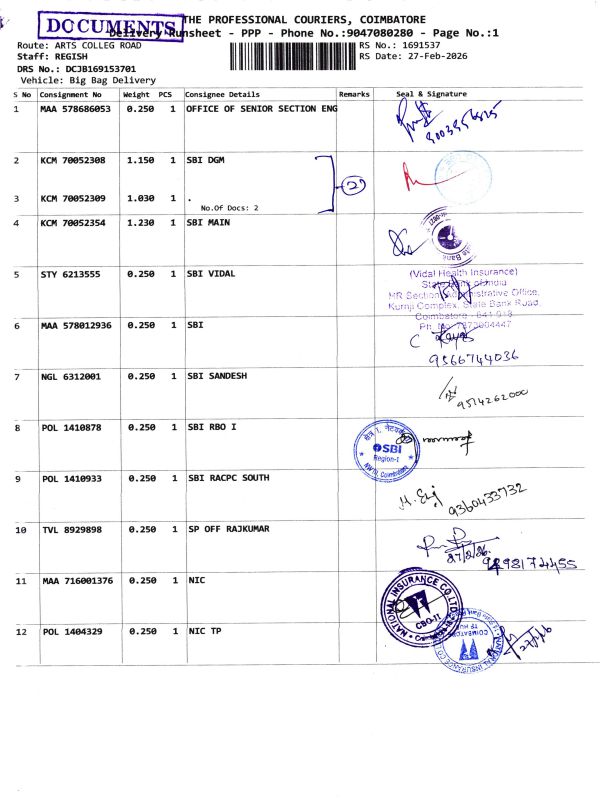 DOCUMENTS
THE PROFESSIONAL COURIERS, COIMBATORE
Delivery Runsheet - PPP - Phone No.:9047080280 - Page No.:1
Route: ARTS COLLEG ROAD
RS No.: 1691537
Staff: REGISH
RS Date: 27-Feb-2026
DRS No.: DCJB169153701
Vehicle: Big Bag Delivery
S No Consignment No Weight PCS Consignee Details Remarks Seal & Signature
1 MAA 578686053 0.250 1 OFFICE OF SENIOR SECTION ENG
2 KCM 70052308 1.150 1 SBI DGM
2
3 KCM 70052309 1.030 1 .
No.Of Docs: 2
4 KCM 70052354 1.230 1 SBI MAIN
5 STY 6213555 0.250 1 SBI VIDAL
(Vidal Health Insurance)
State Bank of India
HR Section, Administrative Office,
Kurnji Complex, State Bank Road,
Coimbatore - 641 018
6 MAA 578012936 0.250 1 SBI
9566744036
7 NGL 6312001 0.250 1 SBI SANDESH
9514262000
8 POL 1410878 0.250 1 SBI RBO I
SBI
Region-I
9 POL 1410933 0.250 1 SBI RACPC SOUTH
9360433732
10 TVL 8929898 0.250 1 SP OFF RAJKUMAR
27/2/26
11 MAA 716001376 0.250 1 NIC
NATIONAL INSURANCE CO LTD
CBO-II
12 POL 1404329 0.250 1 NIC TP